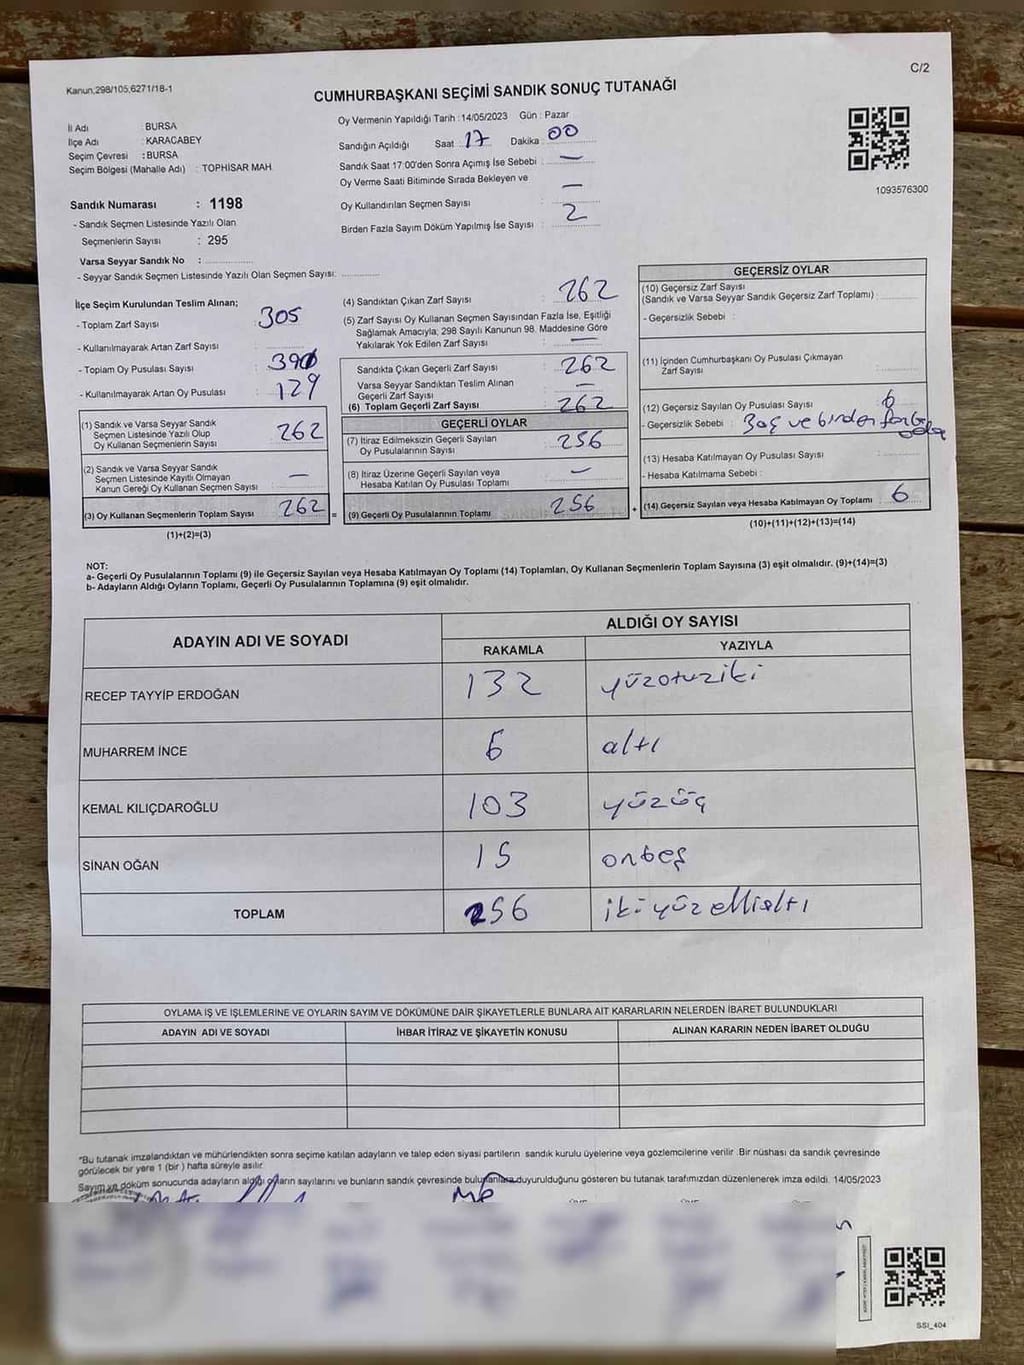 C/2
Kanun,298/105,6271/18-1
CUMHURBAŞKANI SEÇİMİ SANDIK SONUÇ TUTANAĞI
İl Adı : BURSA
İlçe Adı : KARACABEY
Seçim Çevresi : BURSA
Seçim Bölgesi (Mahalle Adı) : TOPHİSAR MAH
Sandık Numarası : 1198
- Sandık Seçmen Listesinde Yazılı Olan
Seçmenlerin Sayısı : 295
Varsa Seyyar Sandık No :
- Seyyar Sandık Seçmen Listesinde Yazılı Olan Seçmen Sayısı:
Oy Vermenin Yapıldığı Tarih : 14/05/2023 Gün : Pazar
Sandığın Açıldığı Saat : 17 Dakika : 00
Sandık Saat 17:00'den Sonra Açımış İse Sebebi : —
Oy Verme Saati Bitiminde Sırada Bekleyen ve
Oy Kullandırılan Seçmen Sayısı : —
Birden Fazla Sayım Döküm Yapılmış İse Sayısı : 2
1093576300
İlçe Seçim Kurulundan Teslim Alınan;
- Toplam Zarf Sayısı : 305
- Kullanılmayarak Artan Zarf Sayısı :
- Toplam Oy Pusulası Sayısı :
- Kullanılmayarak Artan Oy Pusulası : 129
(1) Sandık ve Varsa Seyyar Sandık
Seçmen Listesinde Yazılı Olup
Oy Kullanan Seçmenlerin Sayısı : 262
(2) Sandık ve Varsa Seyyar Sandık
Seçmen Listesinde Kayıtlı Olmayan
Kanun Gereği Oy Kullanan Seçmen Sayısı : —
(3) Oy Kullanan Seçmenlerin Toplam Sayısı 262
(1)+(2)=(3)
(4) Sandıktan Çıkan Zarf Sayısı : 262
(5) Zarf Sayısı Oy Kullanan Seçmen Sayısından Fazla İse, Eşitliği
Sağlamak Amacıyla; 298 Sayılı Kanunun 98. Maddesine Göre
Yakılarak Yok Edilen Zarf Sayısı : —
Sandıkta Çıkan Geçerli Zarf Sayısı : 262
Varsa Seyyar Sandıktan Teslim Alınan
Geçerli Zarf Sayısı : —
(6) Toplam Geçerli Zarf Sayısı : 262
GEÇERLİ OYLAR
(7) İtiraz Edilmeksizin Geçerli Sayılan
Oy Pusulalarının Sayısı : 256
(8) İtiraz Üzerine Geçerli Sayılan veya
Hesaba Katılan Oy Pusulası Toplamı : —
(9) Geçerli Oy Pusulalarının Toplamı 256
GEÇERSİZ OYLAR
(10) Geçersiz Zarf Sayısı
(Sandık ve Varsa Seyyar Sandık Geçersiz Zarf Toplamı) :
- Geçersizlik Sebebi :
(11) İçinden Cumhurbaşkanı Oy Pusulası Çıkmayan
Zarf Sayısı :
(12) Geçersiz Sayılan Oy Pusulası Sayısı : 6
- Geçersizlik Sebebi : Boş ve birden fazla
(13) Hesaba Katılmayan Oy Pusulası Sayısı :
- Hesaba Katılmama Sebebi :
(14) Geçersiz Sayılan veya Hesaba Katılmayan Oy Toplamı 6
(10)+(11)+(12)+(13)=(14)
NOT:
a- Geçerli Oy Pusulalarının Toplamı (9) ile Geçersiz Sayılan veya Hesaba Katılmayan Oy Toplamı (14) Toplamları, Oy Kullanan Seçmenlerin Toplam Sayısına (3) eşit olmalıdır. (9)+(14)=(3)
b- Adayların Aldığı Oyların Toplamı, Geçerli Oy Pusulalarının Toplamına (9) eşit olmalıdır.
ADAYIN ADI VE SOYADI
ALDIĞI OY SAYISI
RAKAMLA YAZIYLA
RECEP TAYYİP ERDOĞAN 132 yüzotuziki
MUHARREM İNCE 6 altı
KEMAL KILIÇDAROĞLU 103 yüzüç
SİNAN OĞAN 15 onbeş
TOPLAM 256 ikiyüzellialtı
OYLAMA İŞ VE İŞLEMLERİNE VE OYLARIN SAYIM VE DÖKÜMÜNE DAİR ŞİKAYETLERLE BUNLARA AİT KARARLARIN NELERDEN İBARET BULUNDUKLARI
ADAYIN ADI VE SOYADI İHBAR İTİRAZ VE ŞİKAYETİN KONUSU ALINAN KARARIN NEDEN İBARET OLDUĞU
*Bu tutanak imzalandıktan ve mühürlendikten sonra seçime katılan adayların ve talep eden siyasi partilerin sandık kurulu üyelerine veya gözlemcilerine verilir. Bir nüshası da sandık çevresinde
görülecek bir yere 1 (bir) hafta süreyle asılır.
Sayım ve döküm sonucunda adayların aldığı oyların sayılarını ve bunların sandık çevresinde duyurulduğunu gösteren bu tutanak tarafımızdan düzenlenerek imza edildi. 14/05/2023
SSI_404